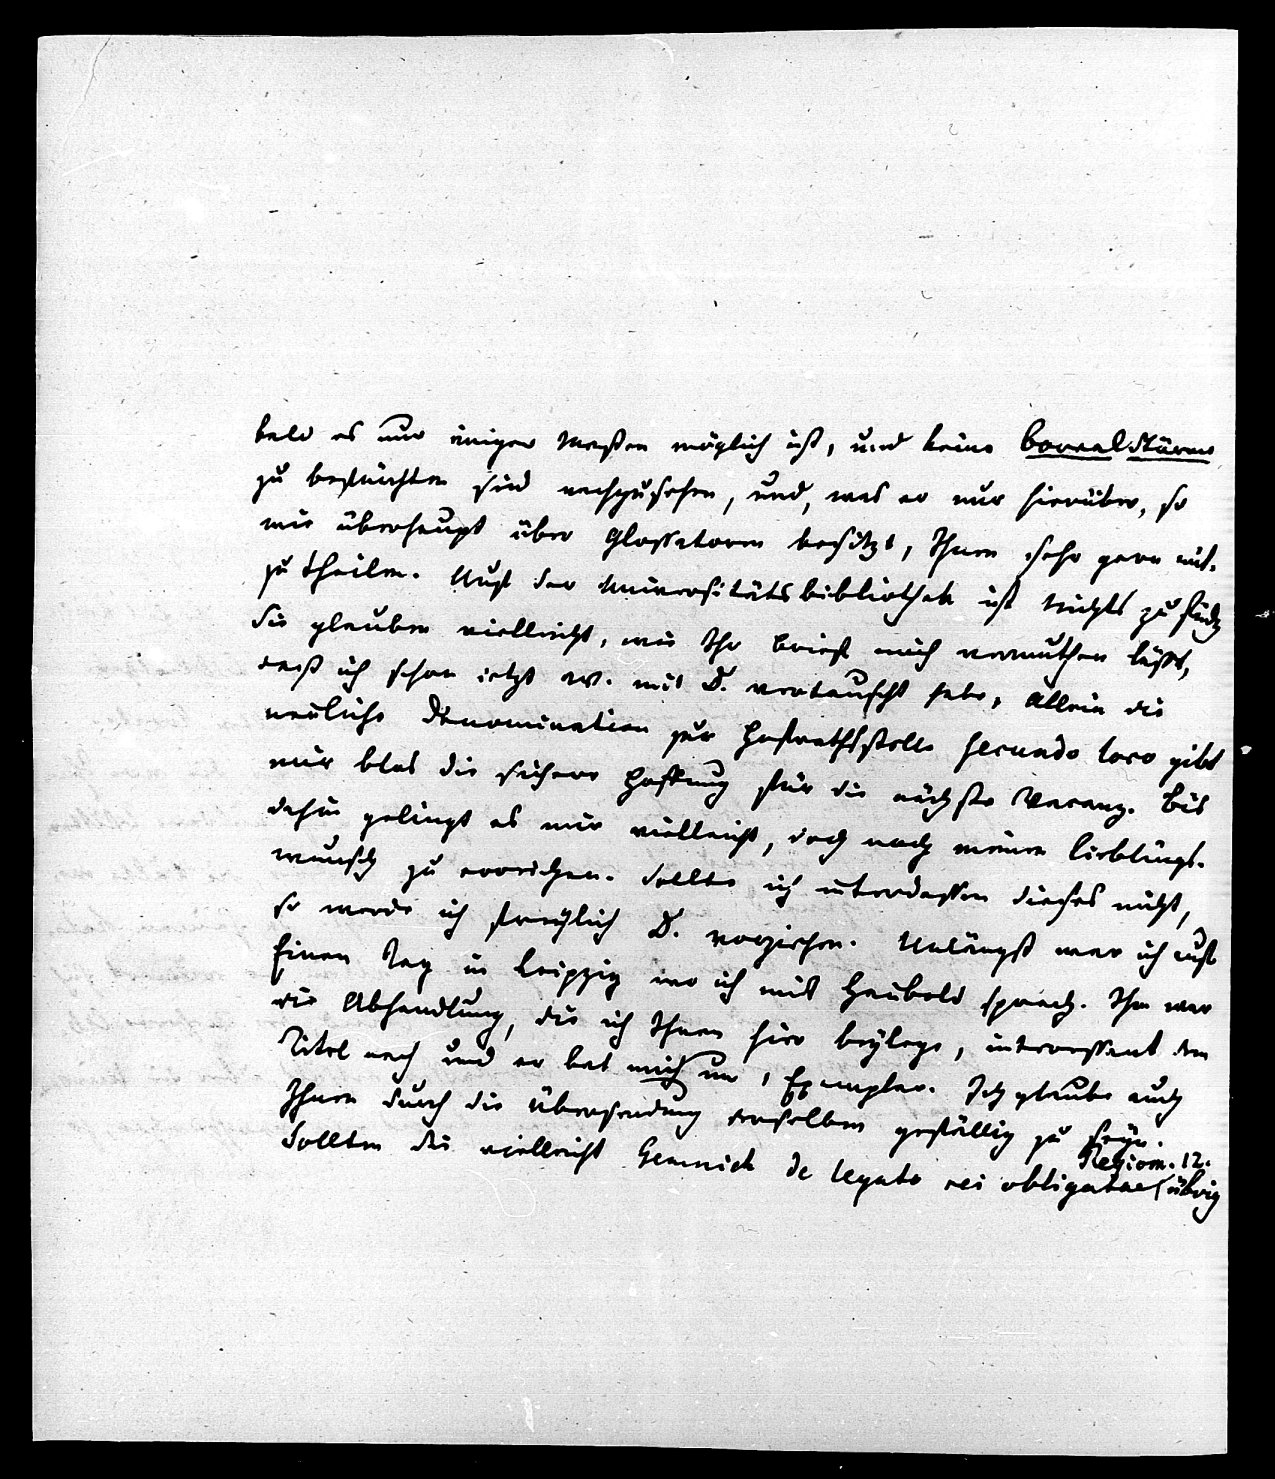 bald es nur einiger Maßen möglich ist, und keine Borealstürme
zu befürchten sind nachzusehen, und, was er nur hierüber, so
wie überhaupt über Glossatoren besitzt, Ihnen sehr gern mit-
zutheilen. Auf der Universitätsbibliothek ist nichts zu finden
Sie glauben vielleicht, wie Ihr Brief mich vermuthen läßt,
daß ich schon jetzt W. mit D. vertauscht habe, Allein die
neuliche Denomination zur Hofrathsstelle secundo loco gibt
mir blos die sichere Hoffnung für die nächste Vacanz. Bis
dahin gelingt es mir vielleicht, doch noch meinen Lieblings-
wunsch zu erreichen. Sollte ich unterdessen dieses nicht,
so werde ich freylich D. vorziehen. Unlängst war ich auf
Einen Tag in Leipzig wo ich mit Haubold sprach. Ihm war
die Abhandlung, die ich Ihnen hier beylege, interessant dem
Titel nach und er bat mich um 1 Exemplar. Ich glaube auch
Ihnen durch die Übersendung derselben gefällig zu seyn.
Sollten Sie vielleicht de legato rei obligatae (übrig
Regiom. 12.